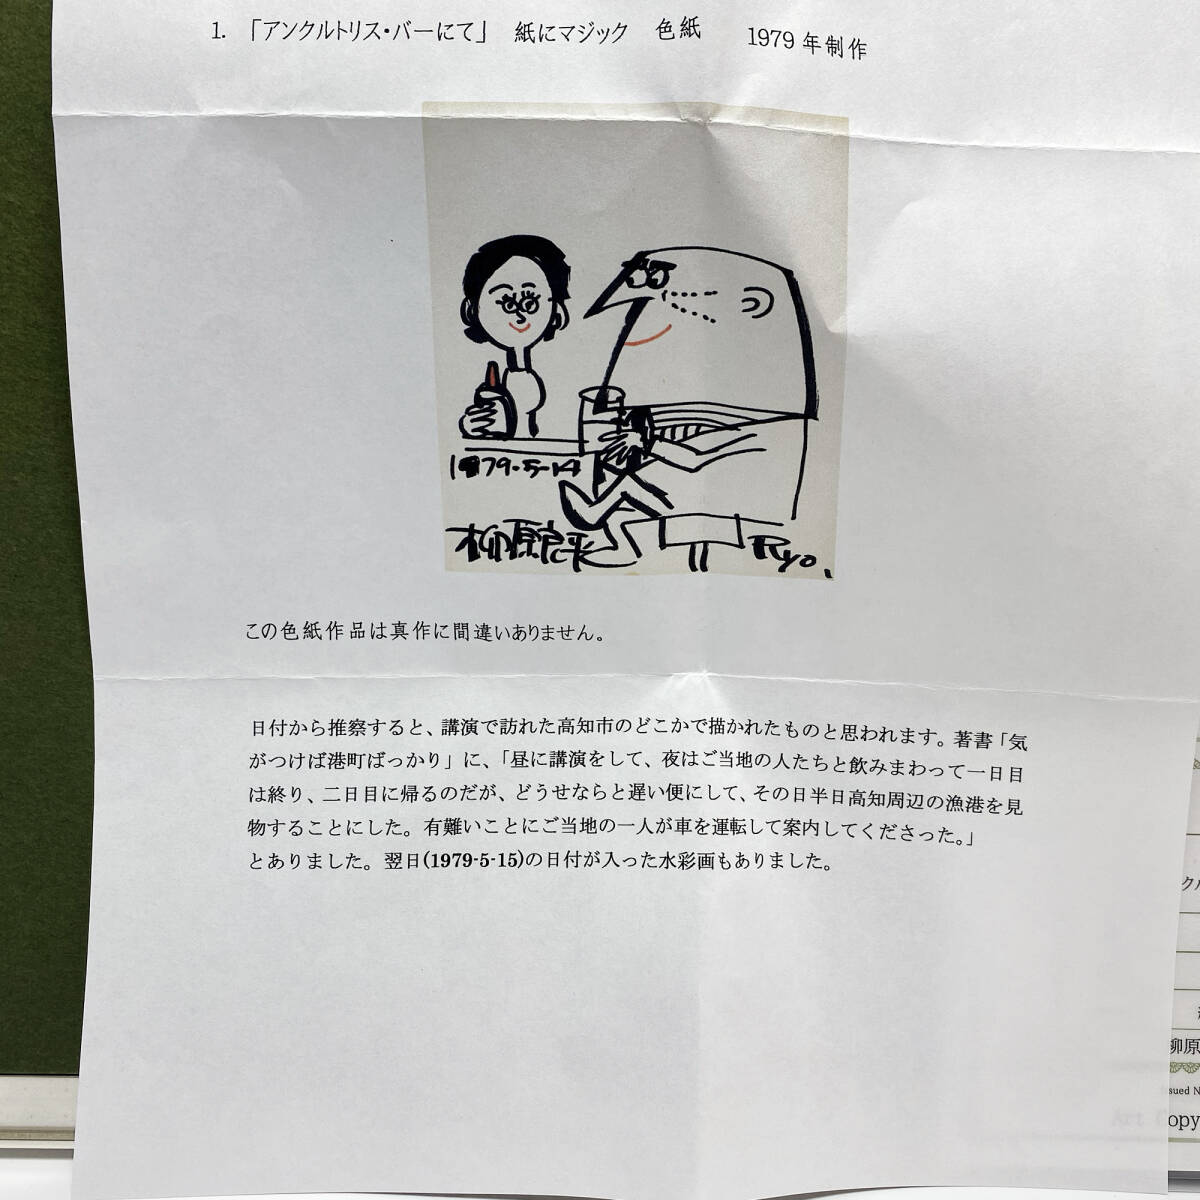 1. 「アンクルトリス・バーにて」 紙にマジック 色紙 1979年制作
1979・5-14
柳原良平
Ryo.
この色紙作品は真作に間違いありません。
日付から推察すると、講演で訪れた高知市のどこかで描かれたものと思われます。著書「気
がつけば港町ばっかり」に、「昼に講演をして、夜はご当地の人たちと飲みまわって一日目
は終り、二日目に帰るのだが、どうせならと遅い便にして、その日半日高知周辺の漁港を見
物することにした。有難いことにご当地の一人が車を運転して案内してくださった。」
とありました。翌日(1979-5-15)の日付が入った水彩画もありました。
柳原
Art Copy